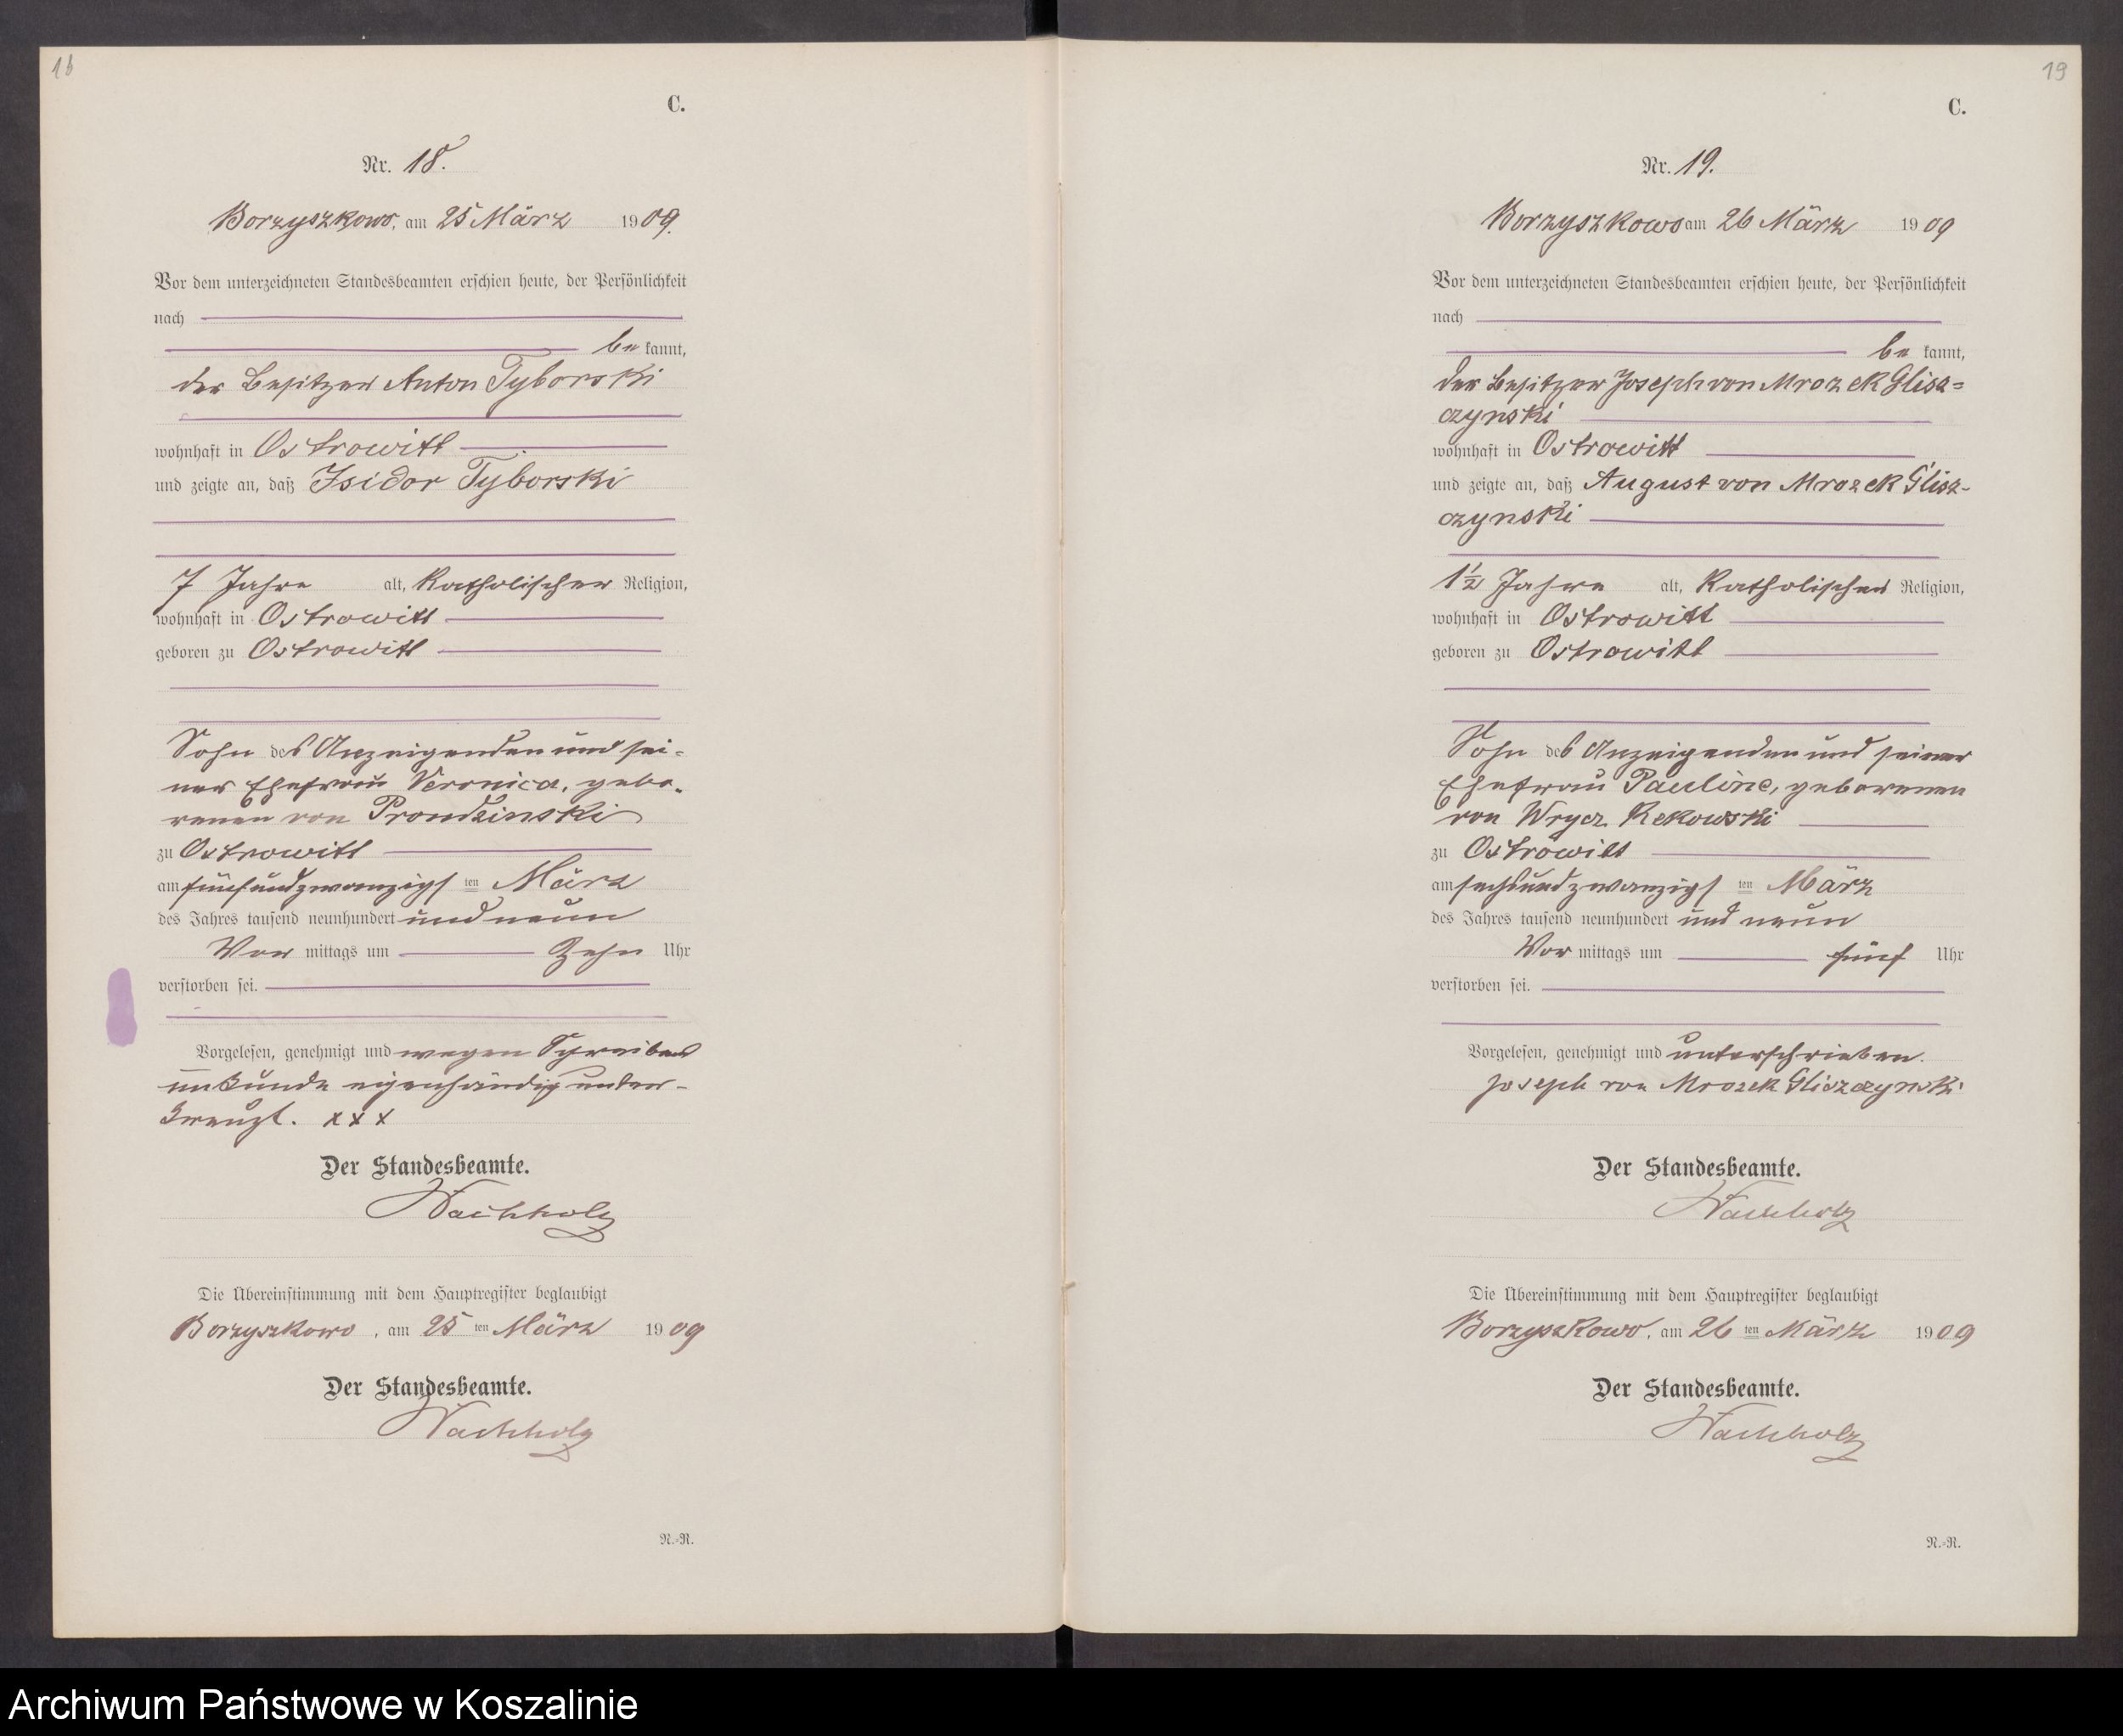 18
C.
Nr. 18.
Borzyszkowo, am 25 März 1909.
Vor dem unterzeichneten Standesbeamten erschien heute, der Persönlichkeit
nach
be kannt,
der Besitzer Anton Tyborski
wohnhaft in Ostrowitt
und zeigte an, daß Isidor Tyborski
7 Jahre alt, katholischer Religion,
wohnhaft in Ostrowitt
geboren zu Ostrowitt
Sohn des Anzeigenden und sei-
ner Ehefrau Veronica, gebo-
renen von Prondzinski
zu Ostrowitt
am fünfundzwanzigsten März
des Jahres tausend neunhundert und neun
Vor mittags um Zehn Uhr
verstorben sei.
Vorgelesen, genehmigt und wegen Schreibens
unkunde eigenhändig unter-
kreuzt. x x x
Der Standesbeamte.
Wachholz
Die Übereinstimmung mit dem Hauptregister beglaubigt
Borzyszkowo, am 25 ten März 1909
Der Standesbeamte.
Wachholz
N.-R.
19
C.
Nr. 19.
Borzyszkowo am 26 März 1909
Vor dem unterzeichneten Standesbeamten erschien heute, der Persönlichkeit
nach
be kannt,
der Besitzer Joseph von Mrozek Glisz=
czynski
wohnhaft in Ostrowitt
und zeigte an, daß August von Mrozek Glisz-
czynski
1½ Jahre alt, katholischer Religion,
wohnhaft in Ostrowitt
geboren zu Ostrowitt
Sohn des Anzeigenden und seiner
Ehefrau Pauline, geborenen
von Wrycz Rekowski
zu Ostrowitt
am sechsundzwanzigsten März
des Jahres tausend neunhundert und neun
Vor mittags um fünf Uhr
verstorben sei.
Vorgelesen, genehmigt und unterschrieben.
Joseph von Mrozek Gliszczynski
Der Standesbeamte.
Wachholz
Die Übereinstimmung mit dem Hauptregister beglaubigt
Borzyszkowo, am 26 ten März 1909
Der Standesbeamte.
Wachholz
N.-R.
Archiwum Państwowe w Koszalinie